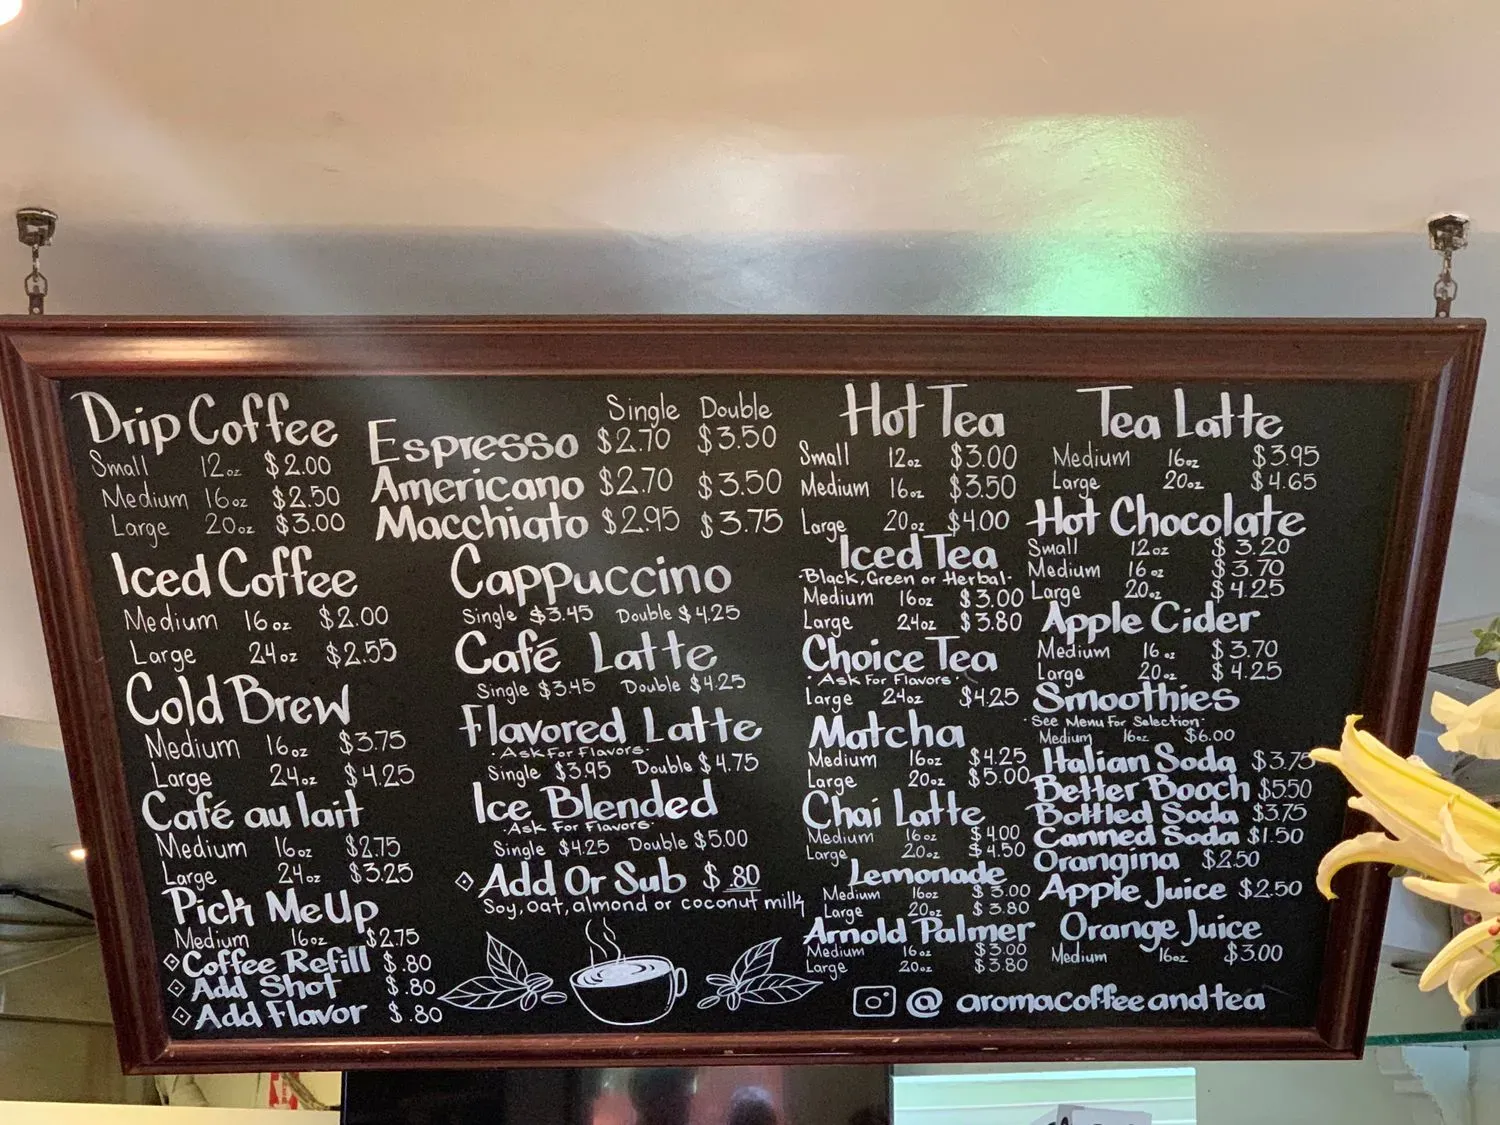 Drip Coffee
Small 12oz $2.00
Medium 16oz $2.50
Large 20oz $3.00
Iced Coffee
Medium 16oz $2.00
Large 24oz $2.55
Cold Brew
Medium 16oz $3.75
Large 24oz $4.25
Café au lait
Medium 16oz $2.75
Large 24oz $3.25
Pick Me Up
Medium 16oz $2.75
Coffee Refill $.80
Add Shot $.80
Add Flavor $.80
Single Double
Espresso $2.70 $3.50
Americano $2.70 $3.50
Macchiato $2.95 $3.75
Cappuccino
Single $3.45 Double $4.25
Café Latte
Single $3.45 Double $4.25
Flavored Latte
·Ask For Flavors·
Single $3.95 Double $4.75
Ice Blended
·Ask For Flavors·
Single $4.25 Double $5.00
Add Or Sub $.80
Soy, oat, almond or coconut milk
Hot Tea
Small 12oz $3.00
Medium 16oz $3.50
Large 20oz $4.00
Iced Tea
·Black, Green or Herbal·
Medium 16oz $3.00
Large 24oz $3.80
Choice Tea
·Ask For Flavors·
Large 24oz $4.25
Matcha
Medium 16oz $4.25
Large 20oz $5.00
Chai Latte
Medium 16oz $4.00
Large 20oz $4.50
Lemonade
Medium 16oz $3.00
Large 20oz $3.80
Arnold Palmer
Medium 16oz $3.00
Large 20oz $3.80
Tea Latte
Medium 16oz $3.95
Large 20oz $4.65
Hot Chocolate
Small 12oz $3.20
Medium 16oz $3.70
Large 20oz $4.25
Apple Cider
Medium 16oz $3.70
Large 20oz $4.25
Smoothies
·See Menu For Selection·
Medium 16oz $6.00
Italian Soda $3.75
Better Booch $5.50
Bottled Soda $3.75
Canned Soda $1.50
Orangina $2.50
Apple Juice $2.50
Orange Juice
Medium 16oz $3.00
@ aromacoffeeandtea